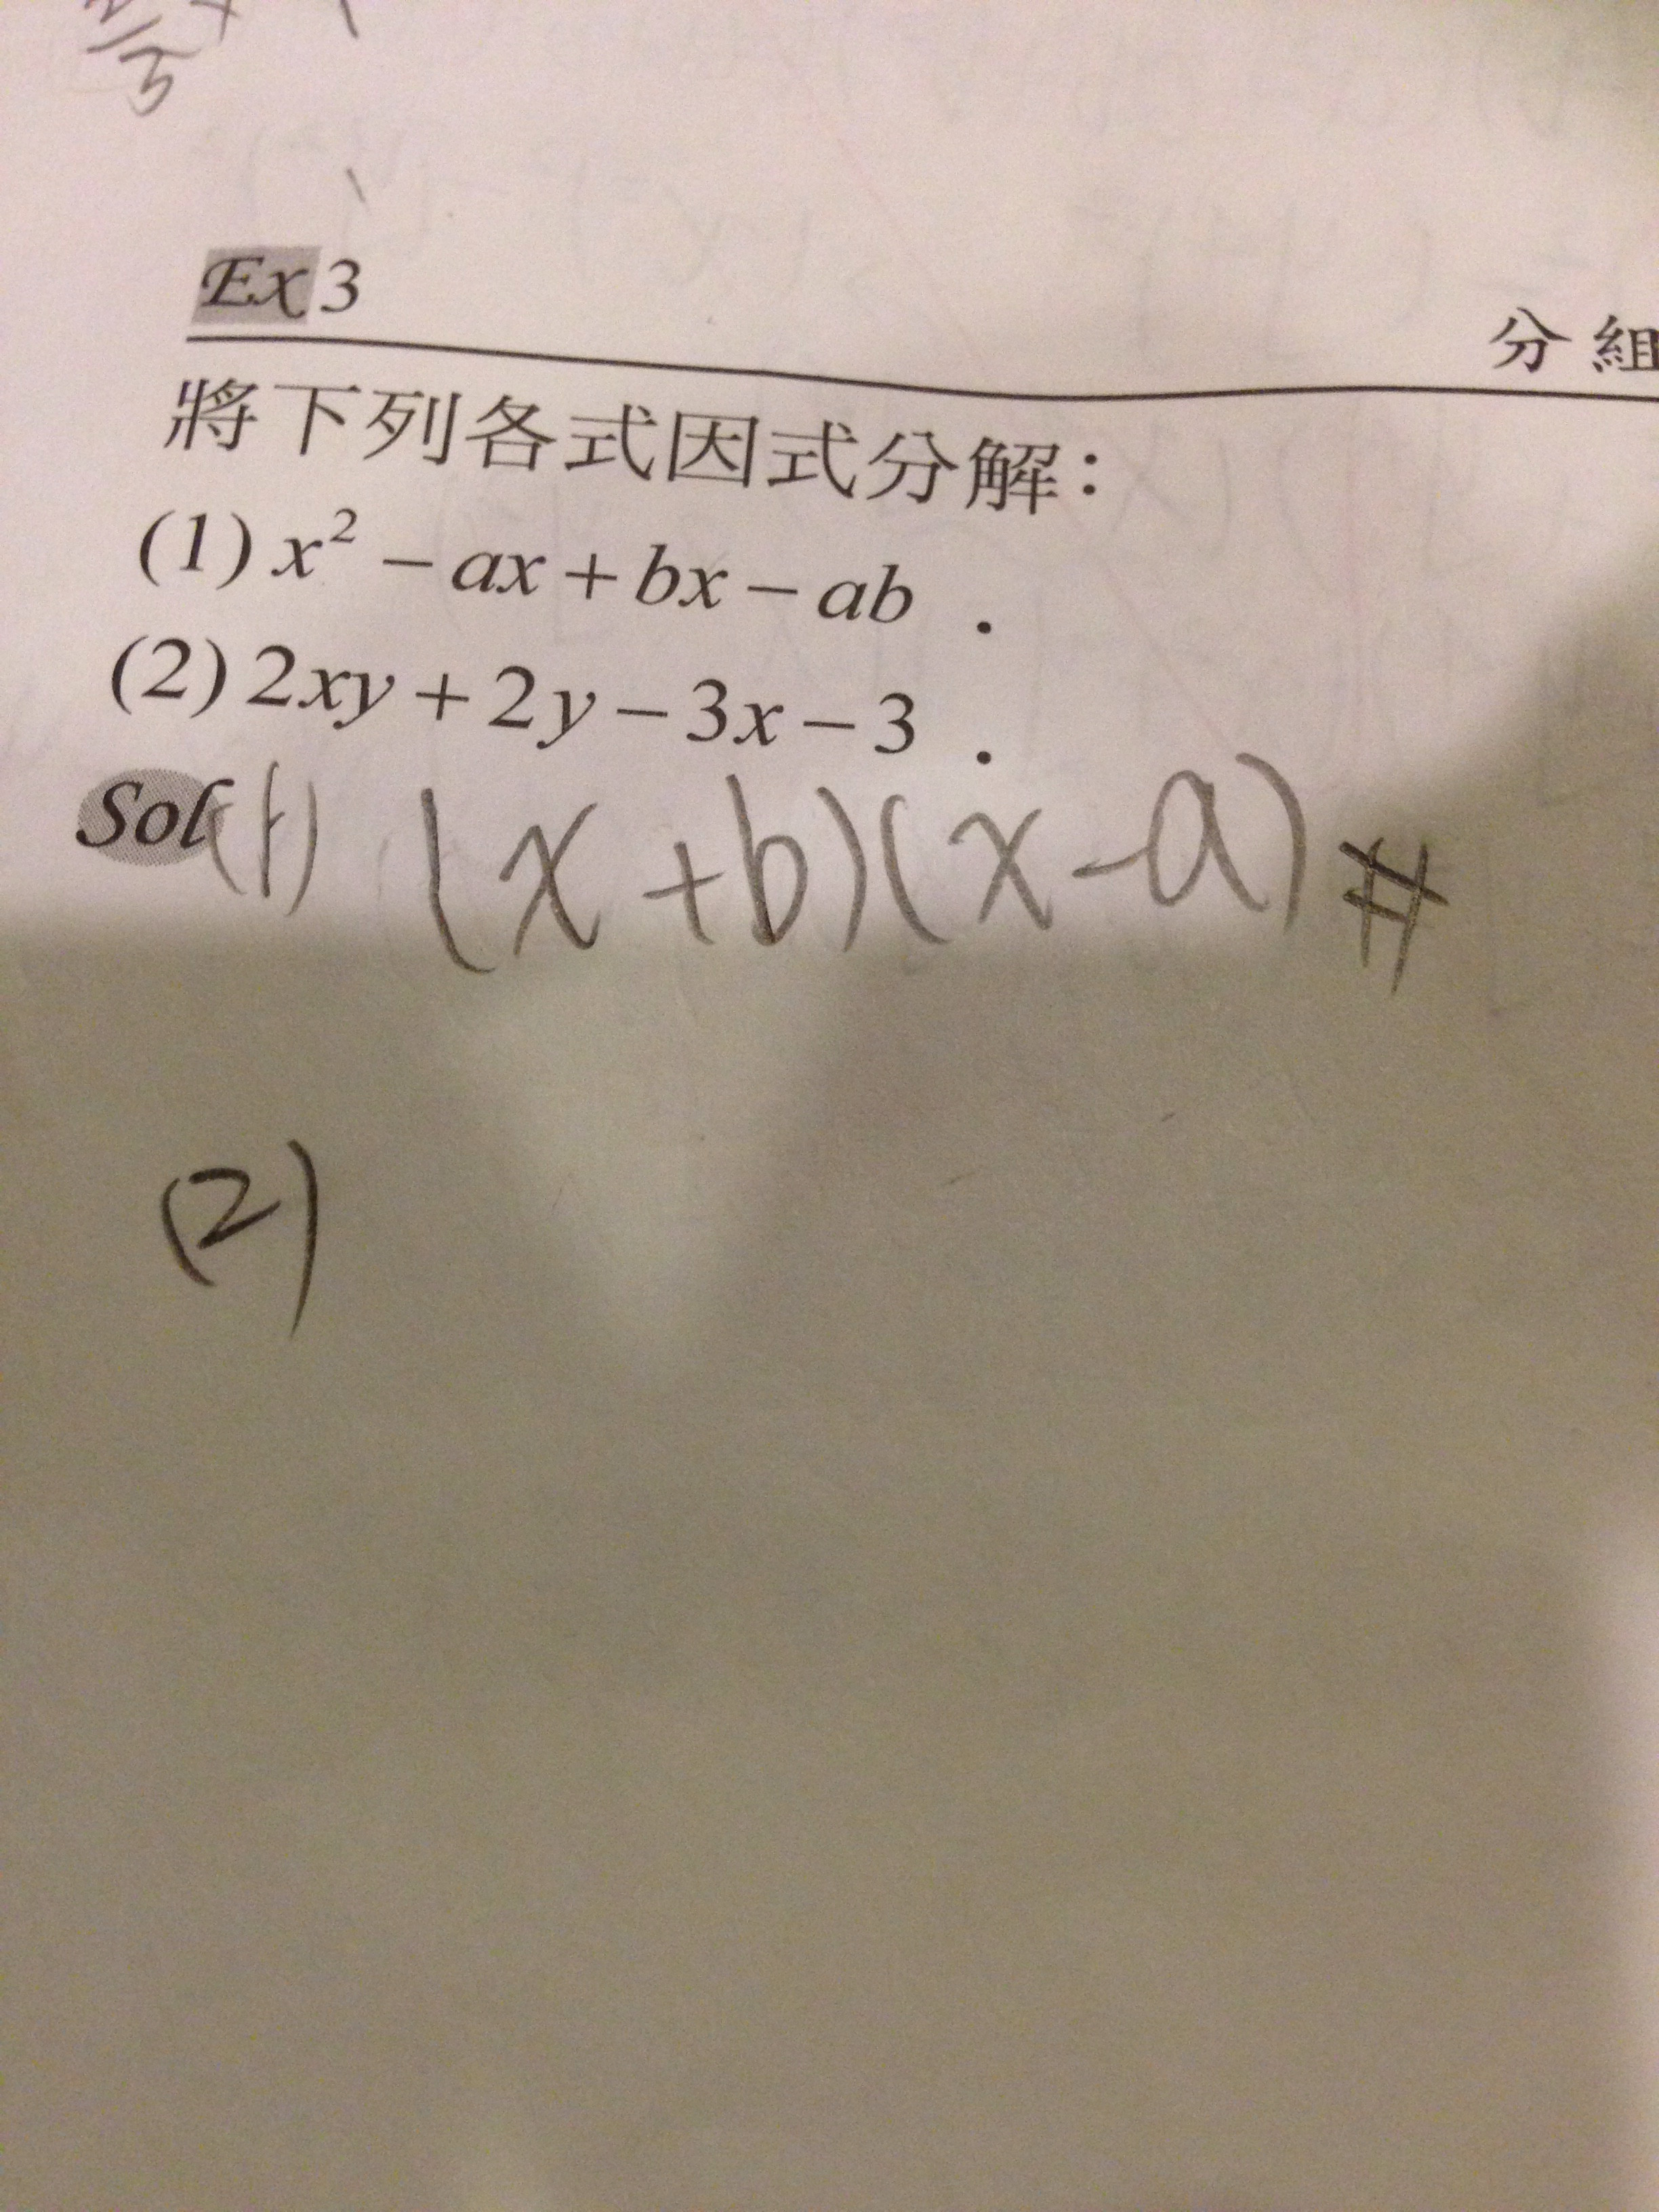 Ex 3
分組
將下列各式因式分解：
(1) x² − ax + bx − ab .
(2) 2xy + 2y − 3x − 3 .
Sol (1) (x+b)(x-a)#
(2)